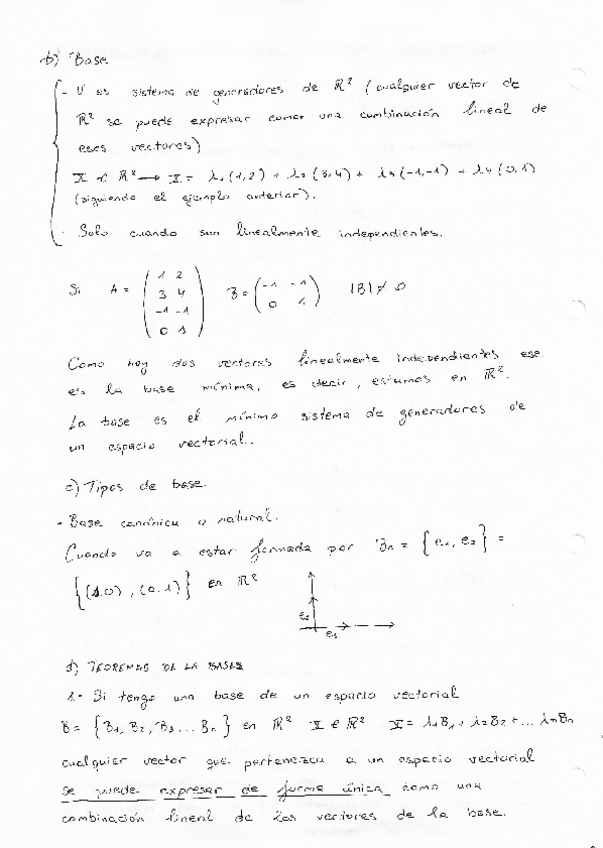 b) Base
- U es sistema de generadores de ℝ² (cualquier vector de
ℝ² se puede expresar como una combinación lineal de
esos vectores)
x̄ ∈ ℝ² → x̄ = λ1(1,2) + λ2(3,4) + λ3(-1,-1) + λ4(0,1)
(siguiendo el ejemplo anterior).
- Solo cuando son linealmente independientes.
Si A = (1 2 / 3 4 / -1 -1 / 0 1) B = (-1 -1 / 0 1) |B| ≠ 0
Como hay dos vectores linealmente independientes ese
es la base mínima, es decir, estamos en ℝ².
La base es el mínimo sistema de generadores de
un espacio vectorial.
c) Tipos de base.
- Base canónica o natural.
Cuando va a estar formada por Bn = {e1, e2} =
{(1,0), (0,1)} en ℝ²
e2
e1
d) TEOREMAS DE LA BASES
1.- Si tengo una base de un espacio vectorial
B = {B1, B2, B3 ... Bn} en ℝ² x̄ ∈ ℝ² x̄ = λ1B1 + λ2B2 + ... λnBn
cualquier vector que pertenezca a un espacio vectorial
se puede expresar de forma única como una
combinación lineal de los vectores de la base.